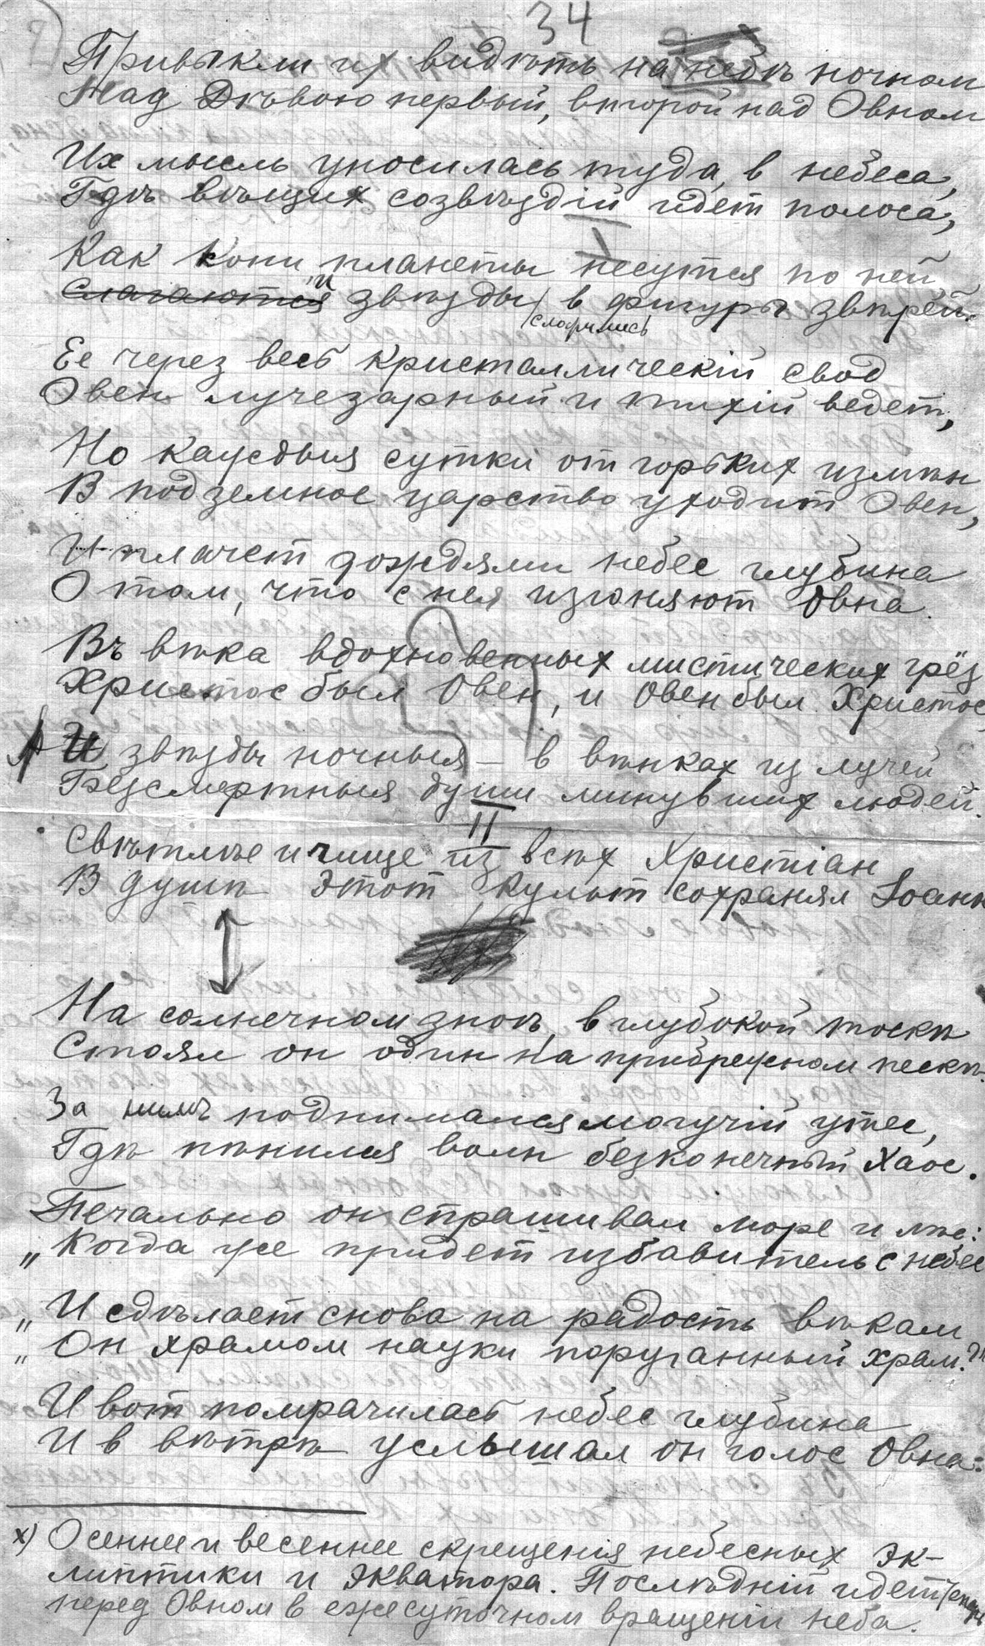 34
Привыкли их видѣть на небѣ ночном
Над Дѣвою первый, второй над Овном
Их мысль уносилась туда, в небеса,
Гдѣ вѣщих созвѣздій идет полоса,
I
Как кони планеты несутся по ней,
и
Слагаются звѣзды в фигуры звѣрей.
сложились
Ее через весь кристаллическій свод
Овен лучезарный и тихій ведет,
Но каждыя сутки от горьких измѣн
В подземное царство уходит Овен,
И плачет дождями небес глубина
О том, что с нея изгоняют Овна.
Въ вѣка вдохновенных мистических грёз
Христос был Овен, и Овен был Христос,
А И звѣзды ночныя – в вѣнках из лучей
Безсмертныя души минувших людей.
II
Свѣтлѣе и чище из всѣх Христіан
В душѣ этот культ сохранял Іоанн
На солнечном зноѣ, в глубокой тоскѣ
Стоял он один на прибрежном пескѣ.
За ним поднимался могучій утес,
Гдѣ пѣнился волн безконечный Хаос.
Печально он спрашивал море и лѣс:
„Когда же придет избавитель с небес
„И сдѣлает снова на радость вѣкам
„Он храмом науки поруганный храм?"
И вот помрачилась небес глубина
И в вѣтрѣ услышал он голос Овна:
х) Осеннее и весеннее скрещенія небесных эк-
липтики и экватора. Послѣдній идет
перед Овном в ежесуточном вращеніи неба.